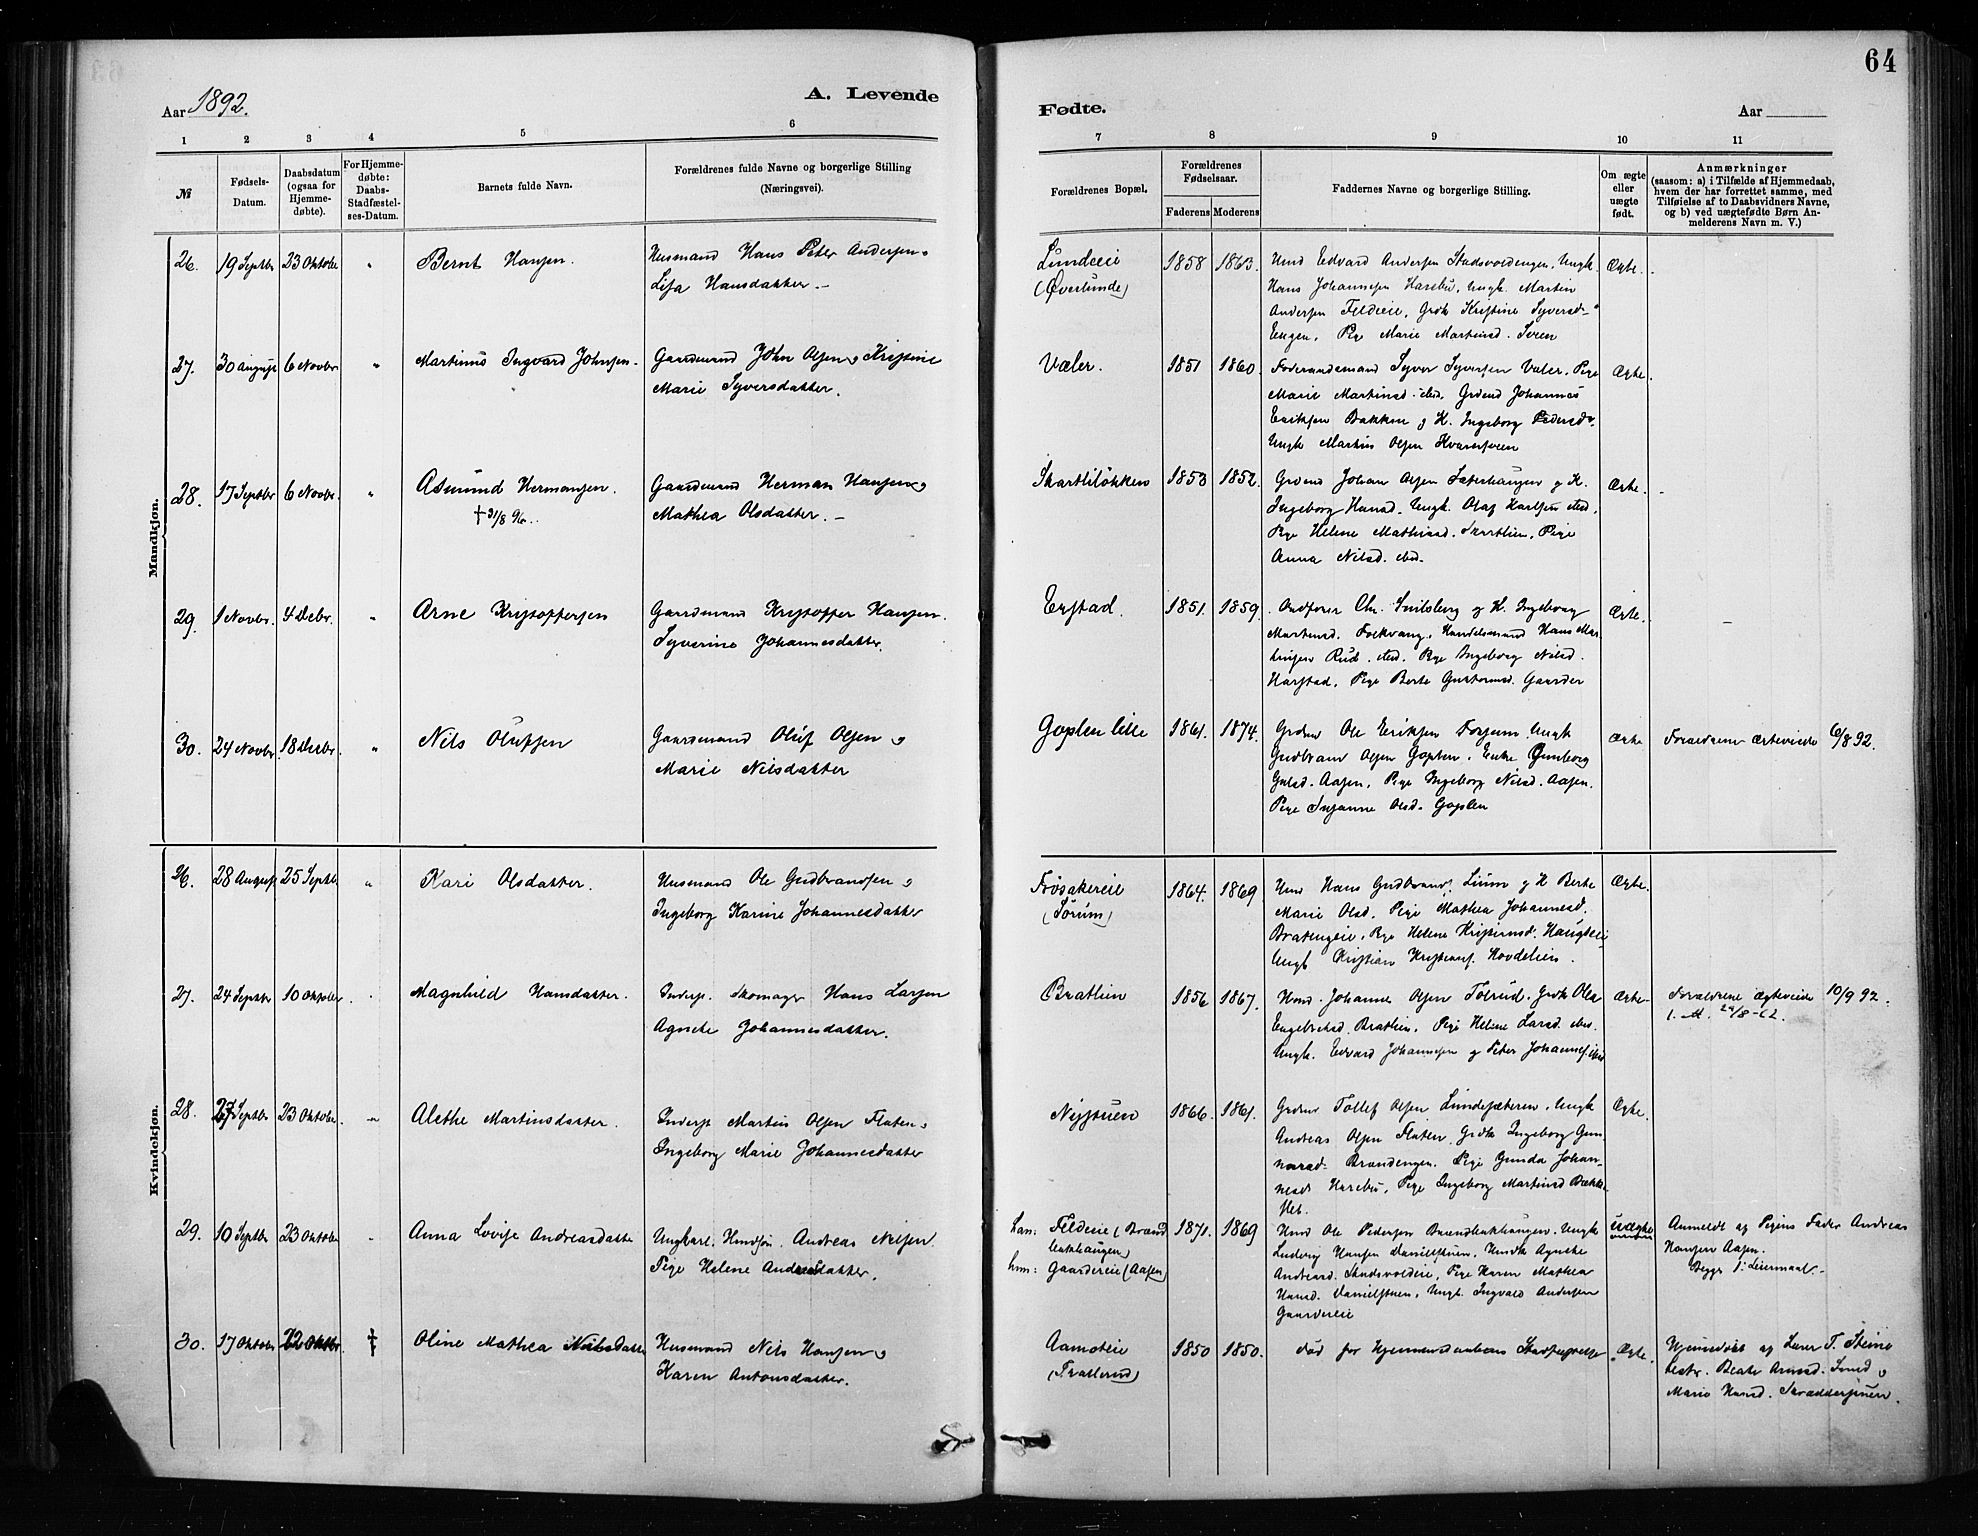 64
Aar 1892.
A. Levende
Fødte.
Aar
1 2 3 4 5 6 7 8 9 10 11
№
Fødsels-
Datum.
Daabsdatum
(ogsaa for
Hjemme-
døbte).
For Hjemme-
døbte:
Daabs-
Stadfæstel-
ses-Datum.
Barnets fulde Navn.
Forældrenes fulde Navne og borgerlige Stilling
(Næringsvei).
Forældrenes Bopæl.
Forældrenes
Fødselsaar.
Faderens Moderens
Faddernes Navne og borgerlige Stilling.
Om ægte
eller
uægte
født.
Anmærkninger
(saasom: a) i Tilfælde af Hjemmedaab,
hvem der har forrettet samme, med
Tilføielse af to Daabsvidners Navne,
og b) ved uægtefødte Børn An-
melderens Navn m. V.)
Mandkjøn.
26. 19 Septbr 23 Oktober " Bernt Hansen. Husmand Hans Peter Andersen og
Lisa Hansdatter. —
Lundeeie
(Øverlunde)
1858 1863. Hmd Edvard Andersen Stadsvoldengen, Ungk.
Hans Johannesen Harebu, Ungk. Martin
Andersen Feldeeie, Grdk Kristine Syversd.
Engen, Pige Marie Martinsd. Sveen
Ægte.
27. 30 August 6 Novbr " Martinus Ingvard Johnsen. Gaardmand John Olsen og Kristine
Marie Syversdatter.
Væler. 1851 1860. Føderaadsmand Syver Syversen Væler, Pige
Marie Martinsd. ibid, Grdmd Johannes
Eriksen Bakken og K. Ingeborg Pedersd.
Ungk Martin Olsen Kvernsveen
Ægte.
28. 17 Septbr 6 Novbr. " Asmund Hermansen.
† 31/8 96.
Gaardmand Herman Hansen og
Mathea Olsdatter. —
Skartliløkken 1853 1852. Grdmd Johan Olsen Sæterhaugen og K.
Ingeborg Hansd. Ungk. Olaf Karlsen sted.
Pige Helene Mathiasd. Skartlien, Pige
Anna Nilsd. ibid.
Ægte.
29. 1 Novbr. 4 Debr. " Arne Kristoffersen Gaardmand Kristoffer Hansen.
Syverine Johannesdatter.
Erstad. 1851. 1859. Landhandler Chr. Snilsberg og K. Ingeborg
Martinsd. Folkvang, Handelsmand Hans Mar-
tinsen Rud. sted. Pige Ingeborg Nilsd.
Harstad, Pige Berte Gustavsd. Gaarder
Ægte.
30. 24 Novbr. 18 Debr. " Nils Olufsen Gaardmand Oluf Olsen og
Marie Nilsdatter
Goplen lille 1861. 1874. Grdmd Ole Eriksen Forsum, Ungk
Gudbrand Olsen Goplen, Enke Gunborg
Gulsd. Aasen, Pige Ingeborg Nilsd. Aasen.
Pige Susanne Olsd. Goplen
Ægte Forældrene ægteviede 6/8 92.
Kvindekjøn.
26. 28 August 25 Septbr. " Kari Olsdatter. Husmand Ole Gudbrandsen og
Ingeborg Karine Johannesdatter
Frøsakereie
(Sørum)
1864. 1869 Hmd Hans Gudbrands. Lium og K Berte
Marie Olsd. Pige Mathea Johannesd.
Bratengeie, Pige Helene Kristiansd. Haugseie
Ungk Kristian Kristians. Hovdelien.
Ægte.
27. 24 Septbr 10 Oktober. Magnhild Hansdatter. Inderst Skomager Hans Larsen
Agnethe Johannesdatter.
Bratlien 1856 1867. Hmd. Johannes Olsen Tolrud, Grdk Olea
Engebretsd. Bratlien, Pige Helene Larsd. ibid.
Ungk. Edvard Johannesen og Peter Johannes. ibid
Ægte. Forældrene ægteviede 10/9 92.
28. 27 Septbr 23 Oktober. Alethe Martinsdatter. Inderst Martin Olsen Flaten og
Ingeborg Marie Johannesdatter
Nystuen 1866. 1861. Grdmd Tollef Olsen Lundesæteren, Ungk
Andreas Olsen Flaten, Grdk Ingeborg Gun-
narsd. Brandengen. Pige Gunda Johan-
nesd. Harebu, Pige Ingeborg Martinsd Bække-
flet.
Ægte.
29. 10 Septbr 23 Oktober Anna Lovise Andreasdatter Ungkarl. Hmdsøn. Andreas Nilsen.
Pige Helene Andreasdatter.
han: Feldeeie (Brænd
bakhaugen)
hun: Gaardereie (Aasen)
1871. 1869 Hmd Ole Pedersen Brændbakhaugen, Ungk
Ludvig Hansen Danielstuen, Hmdk Agnethe
Andreasd. Stadsvoldeie, Pige Karen Mathea
Hansd. Danielstuen, Ungk. Ingvald Andersen
Gaardereie
Uægte Anmeldt af Pigens Fader Andreas
Hansen Aasen.
Begges 1. Leiermaal. —
30. 17 Oktober 22 Oktbr. † Oline Mathea Nilsdatter Husmand Nils Hansen og
Karen Antonsdatter.
Aamoteie
(Fratterud)
1850 1850. død før Hjemmedaabens Stadfæstelse Ægte. Hjemmedøbt af Lærer T. Steine
testr. Beate Arnesd. Smed og
Marie Hansd. Skræddersjuen.